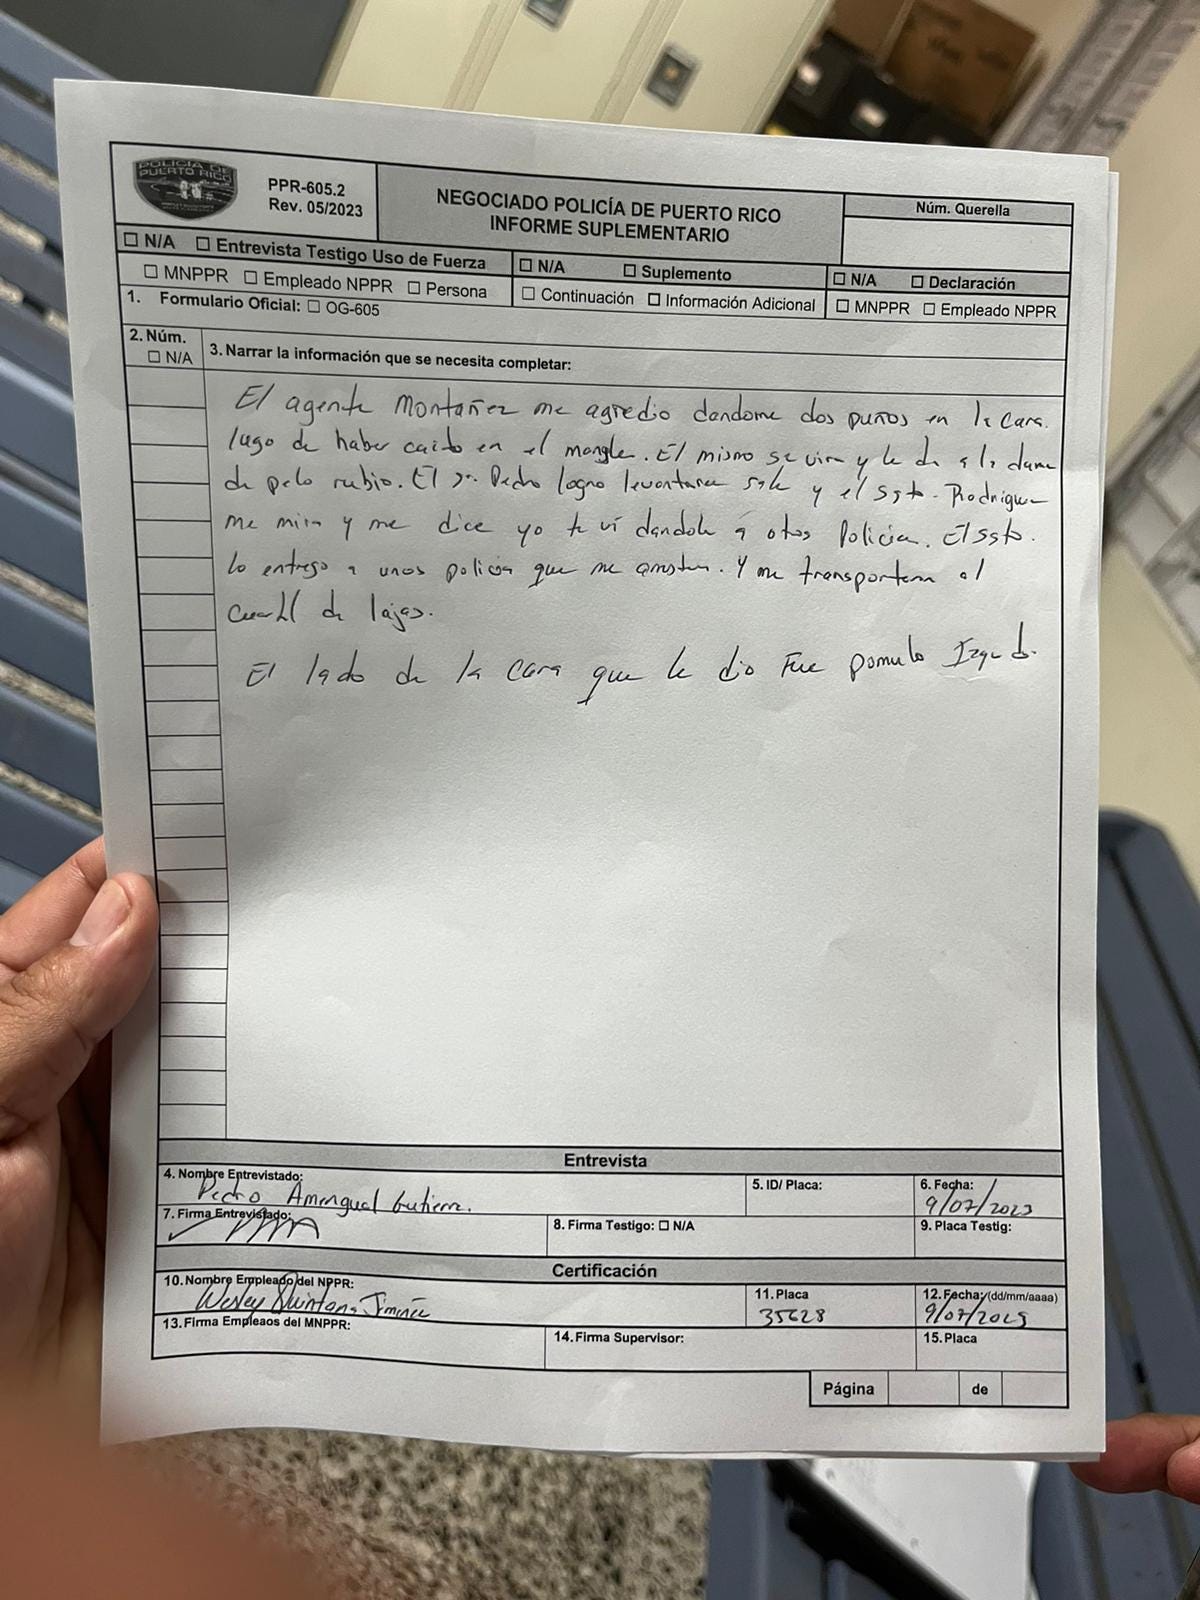 POLICIA DE
PUERTO RICO
PPR-605.2
Rev. 05/2023
NEGOCIADO POLICÍA DE PUERTO RICO
INFORME SUPLEMENTARIO
Núm. Querella
☐ N/A ☐ Entrevista Testigo Uso de Fuerza
☐ MNPPR ☐ Empleado NPPR ☐ Persona
☐ N/A ☐ Suplemento
☐ Continuación ☐ Información Adicional
☐ N/A ☐ Declaración
☐ MNPPR ☐ Empleado NPPR
1. Formulario Oficial: ☐ OG-605
2. Núm.
☐ N/A
3. Narrar la información que se necesita completar:
El agente Montañez me agredio dandome dos puños en la cara.
lugo de haber caido en el mangle. El mismo se vira y le da a la dama
de pelo rubio. El Sr. Pedro logro levantarse y el Sgto. Rodriguez
me mira y me dice yo te vi dandole a otros Policia. El Sgto.
lo entrego a unos policia que me arrestan. Y me transportan al
cuartel de lajas.
El lado de la cara que le dio fue pomulo Izquido.
Entrevista
4. Nombre Entrevistado:
Pedro Amengual Gutierrez.
5. ID/ Placa:
6. Fecha:
9/07/2023
7. Firma Entrevistado:
8. Firma Testigo: ☐ N/A
9. Placa Testig:
Certificación
10. Nombre Empleado del NPPR:
Wesley Quintana Jiminez
11. Placa
35628
12. Fecha: (dd/mm/aaaa)
9/07/2023
13. Firma Empleaos del MNPPR:
14. Firma Supervisor:
15. Placa
Página
de